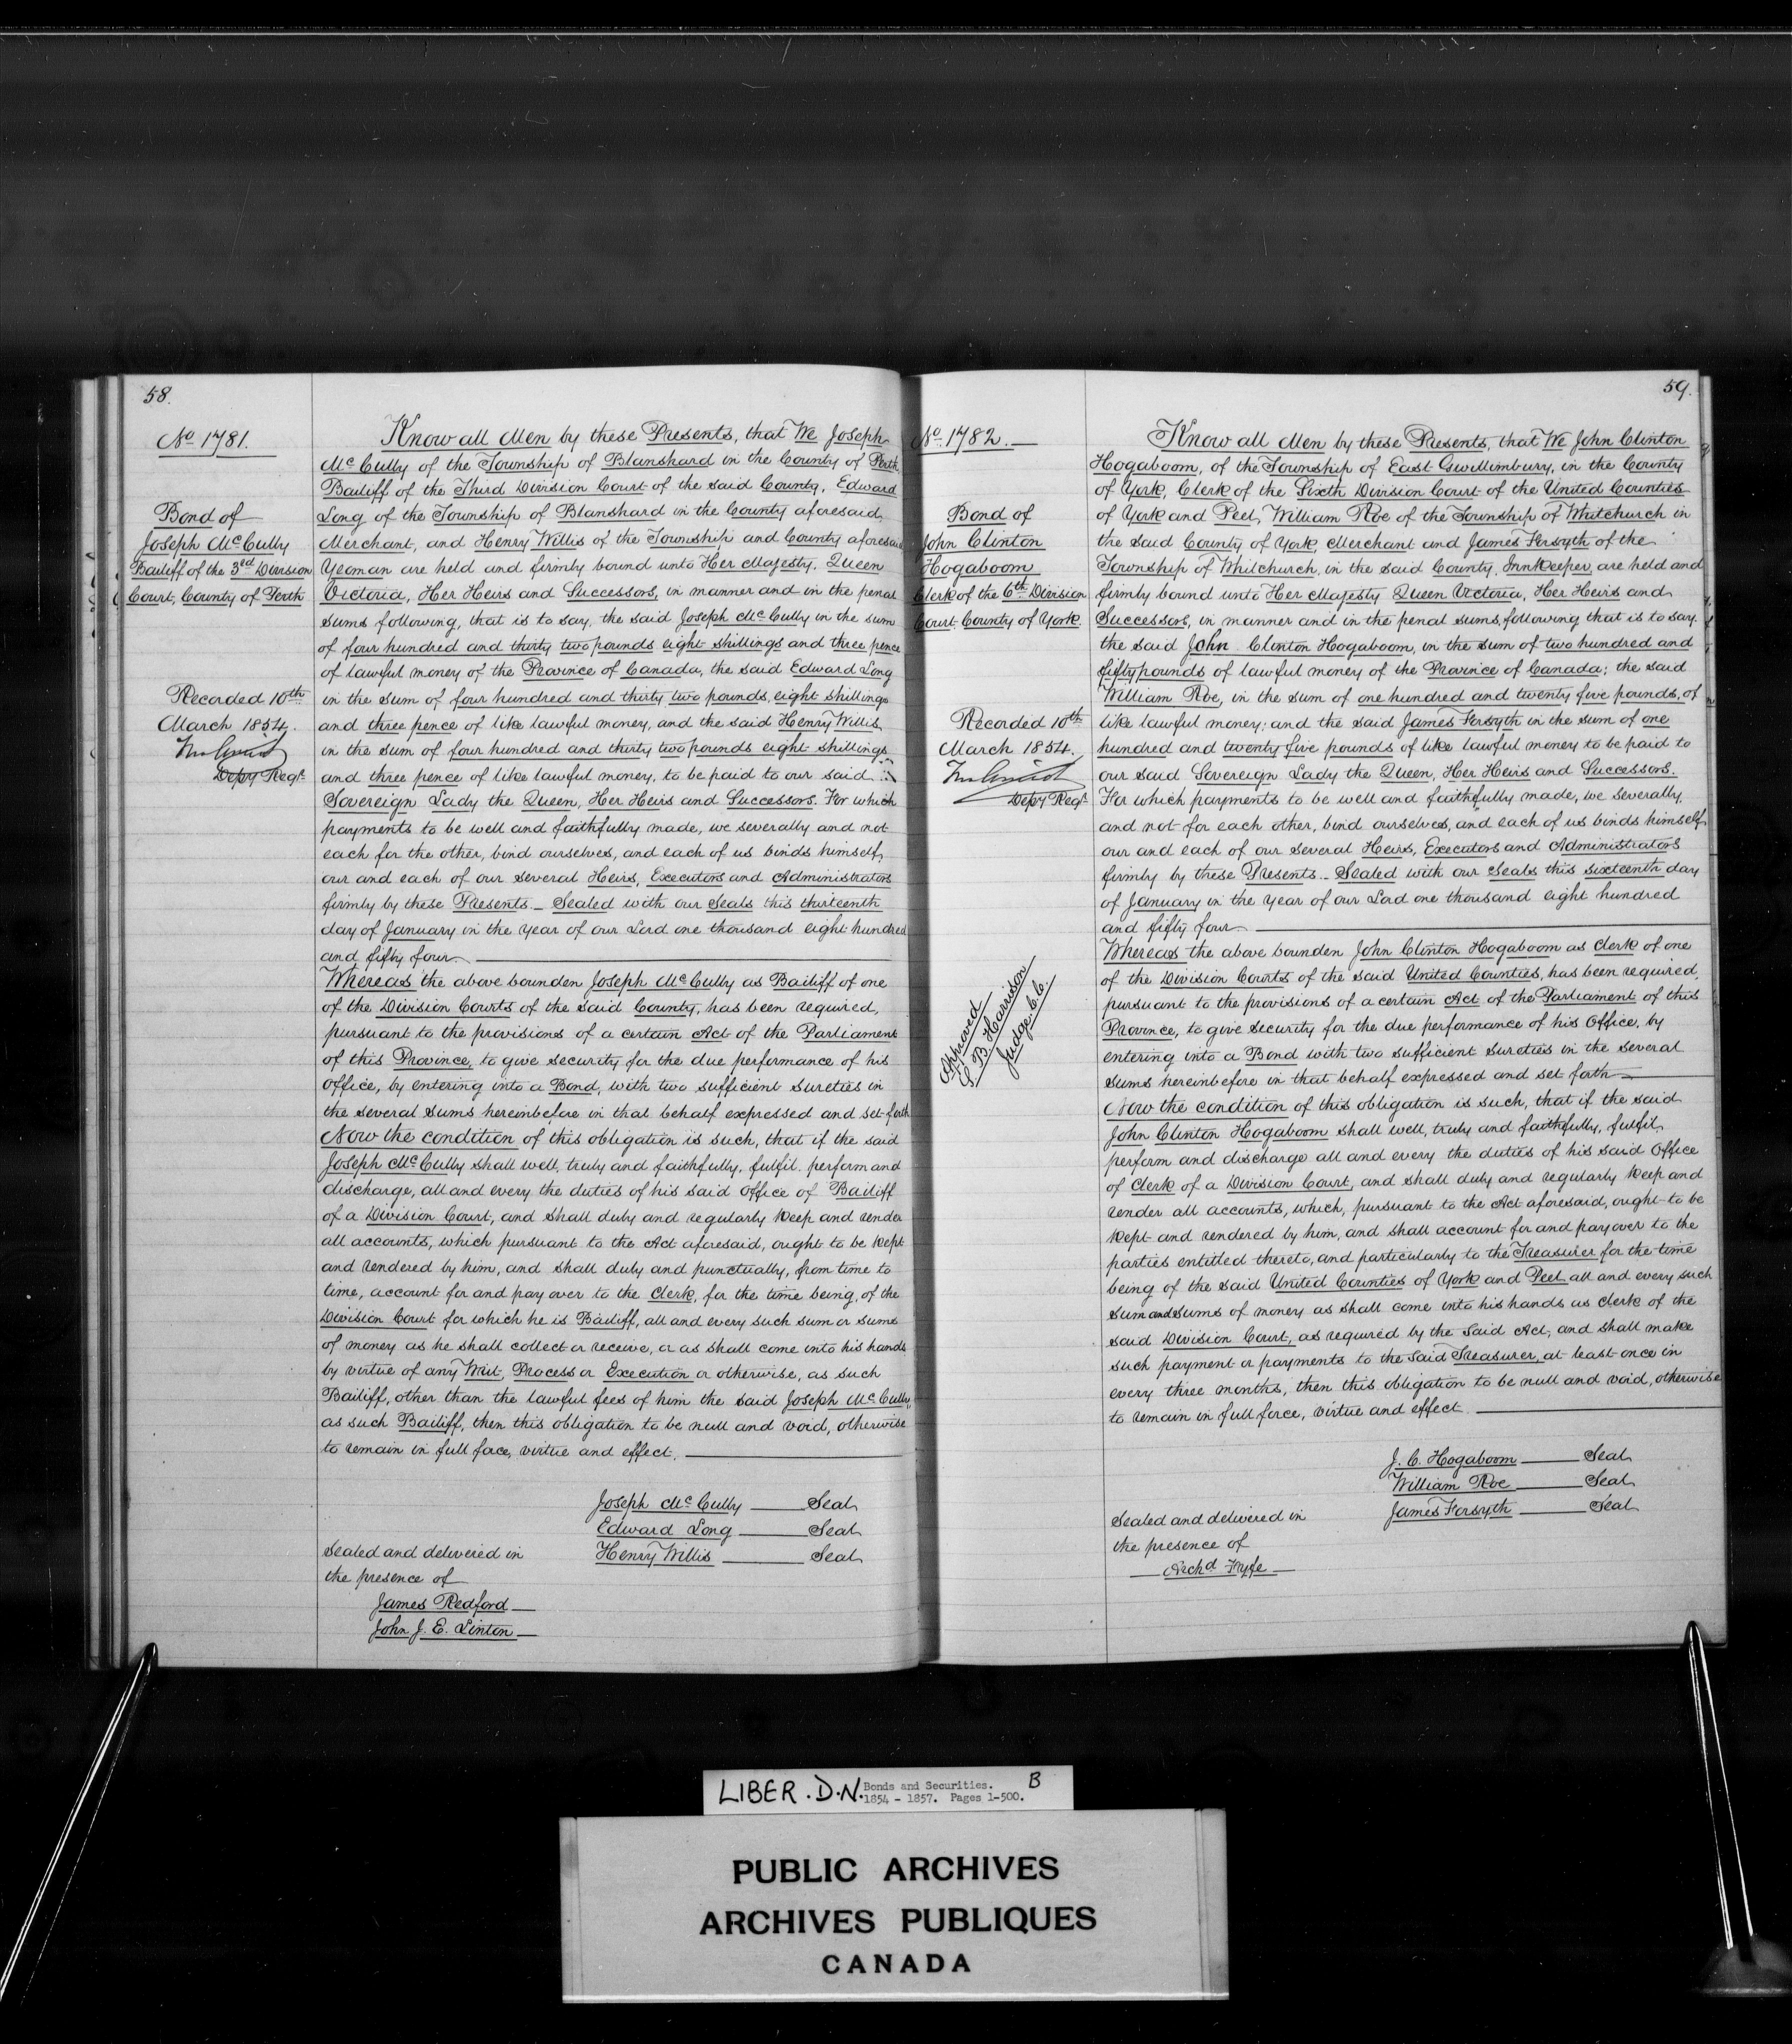 58.
No 1781.
Bond of
Joseph McCully
Bailiff of the 3rd Division
Court, County of Perth
Recorded 10th
March 1854.
Depy Regr
Know all Men by these Presents, that We Joseph
McCully of the Township of Blanshard in the County of Perth
Bailiff of the Third Division Court of the said County, Edward
Long of the Township of Blanshard in the County aforesaid,
Merchant, and Henry Willis of the Township and County aforesaid
Yeoman are held and firmly bound unto Her Majesty, Queen
Victoria, Her Heirs and Successors, in manner and in the penal
sums following, that is to say, the said Joseph McCully in the sum
of four hundred and thirty two pounds eight shillings and three pence
of lawful money of the Province of Canada, the said Edward Long
in the sum of four hundred and thirty two pounds, eight shillings
and three pence of like lawful money, and the said Henry Willis
in the sum of four hundred and thirty two pounds eight shillings
and three pence of like lawful money, to be paid to our said
Sovereign Lady the Queen, Her Heirs and Successors. For which
payments to be well and faithfully made, we severally and not
each for the other, bind ourselves, and each of us binds himself,
our and each of our several Heirs, Executors and Administrators
firmly by these Presents. Sealed with our Seals this thirteenth
day of January in the Year of our Lord one thousand eight hundred
and fifty four.
Whereas the above bounden Joseph McCully as Bailiff of one
of the Division Courts of the said County, has been required,
pursuant to the provisions of a certain Act of the Parliament
of this Province, to give security for the due performance of his
Office, by entering into a Bond, with two sufficient sureties in
the several sums hereinbefore in that behalf expressed and set forth
Now the condition of this obligation is such, that if the said
Joseph McCully shall well, truly and faithfully, fulfil, perform and
discharge, all and every the duties of his said Office of Bailiff
of a Division Court, and shall duly and regularly keep and render
all accounts, which pursuant to the Act aforesaid, ought to be kept
and rendered by him, and shall duly and punctually, from time to
time, account for and pay over to the Clerk, for the time being, of the
Division Court for which he is Bailiff, all and every such sum or sums
of money as he shall collect or receive, or as shall come into his hands
by virtue of any Writ, Process or Execution or otherwise, as such
Bailiff, other than the lawful fees of him the said Joseph McCully,
as such Bailiff, then this obligation to be null and void, otherwise
to remain in full force, virtue and effect.
Joseph McCully Seal
Edward Long Seal
Henry Willis Seal
Sealed and delivered in
the presence of
James Redford
John J. E. Linton
59.
No 1782.
Bond of
John Clinton
Hogaboom
Clerk of the 6th Division
Court County of York.
Recorded 10th
March 1854.
Depy Regr
Approved
S B Harrison
Judge, C.C.
Know all Men by these Presents, that We John Clinton
Hogaboom, of the Township of East Gwillimbury, in the County
of York, Clerk of the Sixth Division Court of the United Counties
of York and Peel, William Roe of the Township of Whitchurch in
the said County of York Merchant and James Forsyth of the
Township of Whitchurch, in the said County, Innkeeper, are held and
firmly bound unto Her Majesty Queen Victoria, Her Heirs and
Successors, in manner and in the penal sums following that is to say.
the said John Clinton Hogaboom, in the sum of two hundred and
fifty pounds of lawful money of the Province of Canada; the said
William Roe, in the sum of one hundred and twenty five pounds, of
like lawful money; and the said James Forsyth in the sum of one
hundred and twenty five pounds of like lawful money to be paid to
our said Sovereign Lady the Queen, Her Heirs and Successors.
For which payments to be well and faithfully made, we severally,
and not for each other, bind ourselves, and each of us binds himself,
our and each of our several Heirs, Executors and Administrators
firmly by these Presents. Sealed with our Seals this sixteenth day
of January in the Year of our Lord one thousand eight hundred
and fifty four
Whereas the above bounden John Clinton Hogaboom as Clerk of one
of the Division Courts of the said United Counties, has been required,
pursuant to the provisions of a certain Act of the Parliament of this
Province, to give security for the due performance of his Office, by
entering into a Bond with two sufficient sureties in the several
sums hereinbefore in that behalf expressed and set forth
Now the condition of this obligation is such, that if the said
John Clinton Hogaboom shall well, truly and faithfully, fulfil,
perform and discharge all and every the duties of his said Office
of Clerk of a Division Court, and shall duly and regularly keep and
render all accounts, which, pursuant to the Act aforesaid, ought to be
kept and rendered by him, and shall account for and pay over to the
parties entitled thereto, and particularly to the Treasurer for the time
being of the said United Counties of York and Peel all and every such
sum and sums of money as shall come into his hands as Clerk of the
said Division Court, as required by the said Act, and shall make
such payment or payments to the said Treasurer, at least once in
every three months, then this obligation to be null and void, otherwise
to remain in full force, virtue and effect.
J. C. Hogaboom Seal
William Roe Seal
James Forsyth Seal
Sealed and delivered in
the presence of
Archd Fyfe
LIBER. D.N. Bonds and Securities. B
1854 - 1857. Pages 1-500.
PUBLIC ARCHIVES
ARCHIVES PUBLIQUES
CANADA